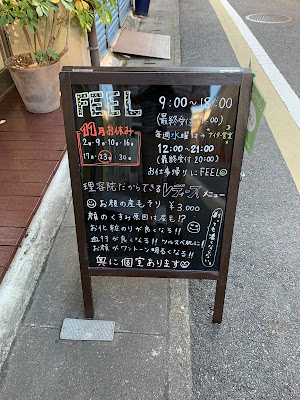 FEEL
11月お休み
2・9・10・16
17・23・30
9:00~18:00
(最終受付 17:00)
毎週水曜は ナイター営業
12:00~21:00
(最終受付 20:00)
お仕事帰りにFEEL
理容院だからできるレディースメニュー
お顔の産毛そり ¥3,000
顔のくすみ原因は産毛!?
お化粧のりが良くなる!!
血行が良くなる!! ツルスベ肌に!
お顔がワントーン明るくなる!!
奥に個室あります